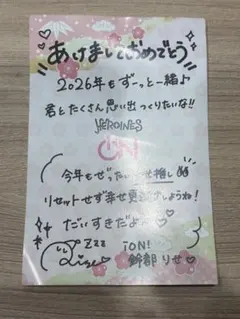 あけましておめでとう
2026年もずーっと一緒♪
君とたくさん思い出つくりたいな!!
HEROINES
iON!
今年もぜったい推し
リセットせず幸せ更新しようね!
だいすきだよ♡
zzz iON!
Rise 鈴部りせ♡